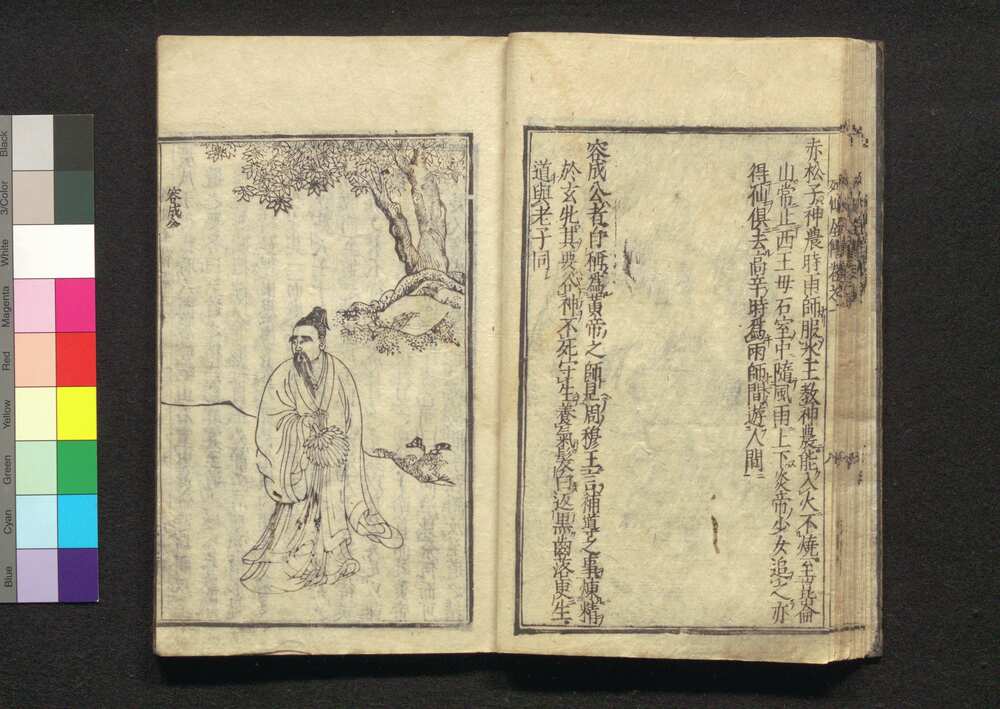 列仙全傳卷之一
赤松子神農時雨師服水玉教神農能入火不燒至崑崙
山常止西王母石室中隨風雨上下炎帝少女追之亦
得仙俱去高辛時爲雨師間遊人間
容成公者自稱爲黃帝之師見周穆王言補導之事煉精
於玄牝其要谷神不死守生養氣髮白返黑齒落更生
道與老子同
容成公
Black
3/Color
White
Magenta
Red
Yellow
Green
Cyan
Blue